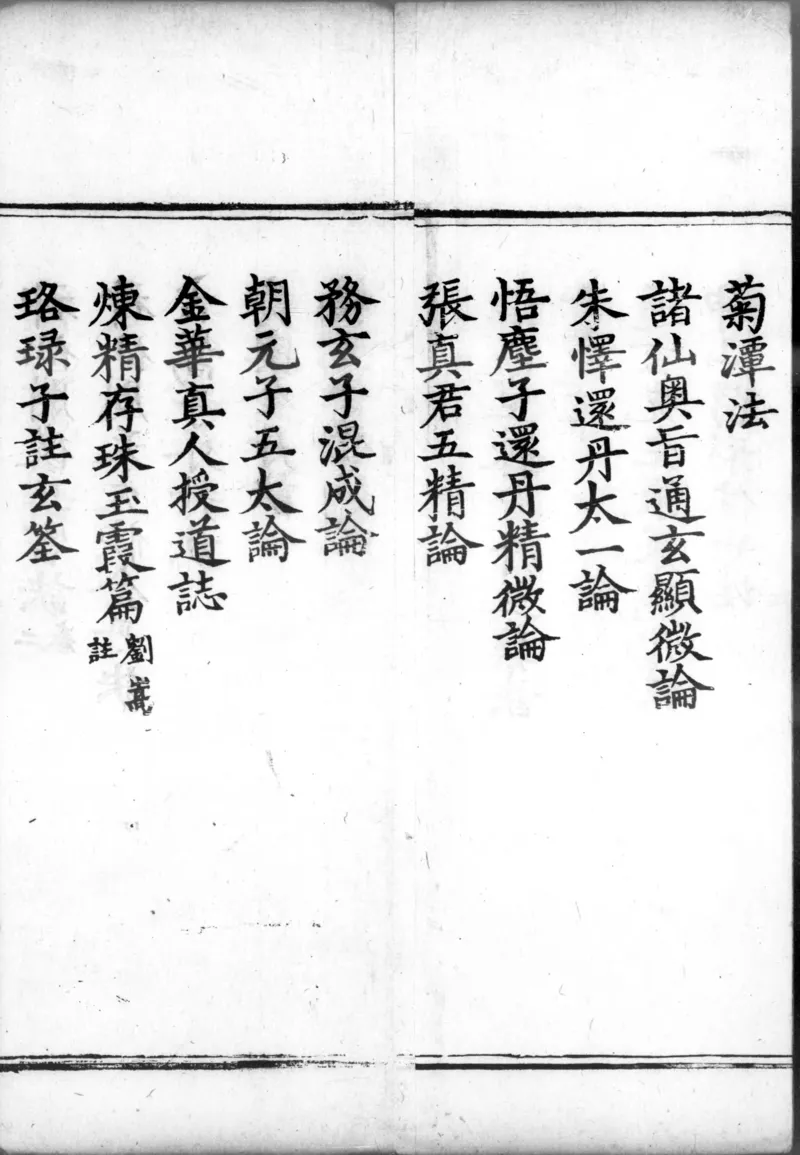 菊潭法
諸仙奥旨通玄顯微論
朱懌還丹太一論
悟塵子還丹精微論
張真君五精論
務玄子混成論
朝元子五太論
金華真人授道誌
煉精存珠玉霞篇劉嵩註
珞琭子註玄筌